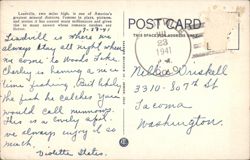 Leadville, two miles high, is one of America's
greatest mineral districts. Famous in place, pictures,
and scenes it has created many millionaires and given
the to many careers whose romance outdoes any
fiction.
7-23-41
Leadville is where we
always stay all night when
we come to Woods Lake.
Charley is having a nice
time fishing. But Nobly
the fish he catches you
would call minnows.
This is a lovely spot.
we always enjoy it so
much.
Violetta States.
POST CARD
THIS SPACE FOR ADDRESS ONLY
23
1941
Nellie Driskell
3310-307th St
Tacoma
Washington.